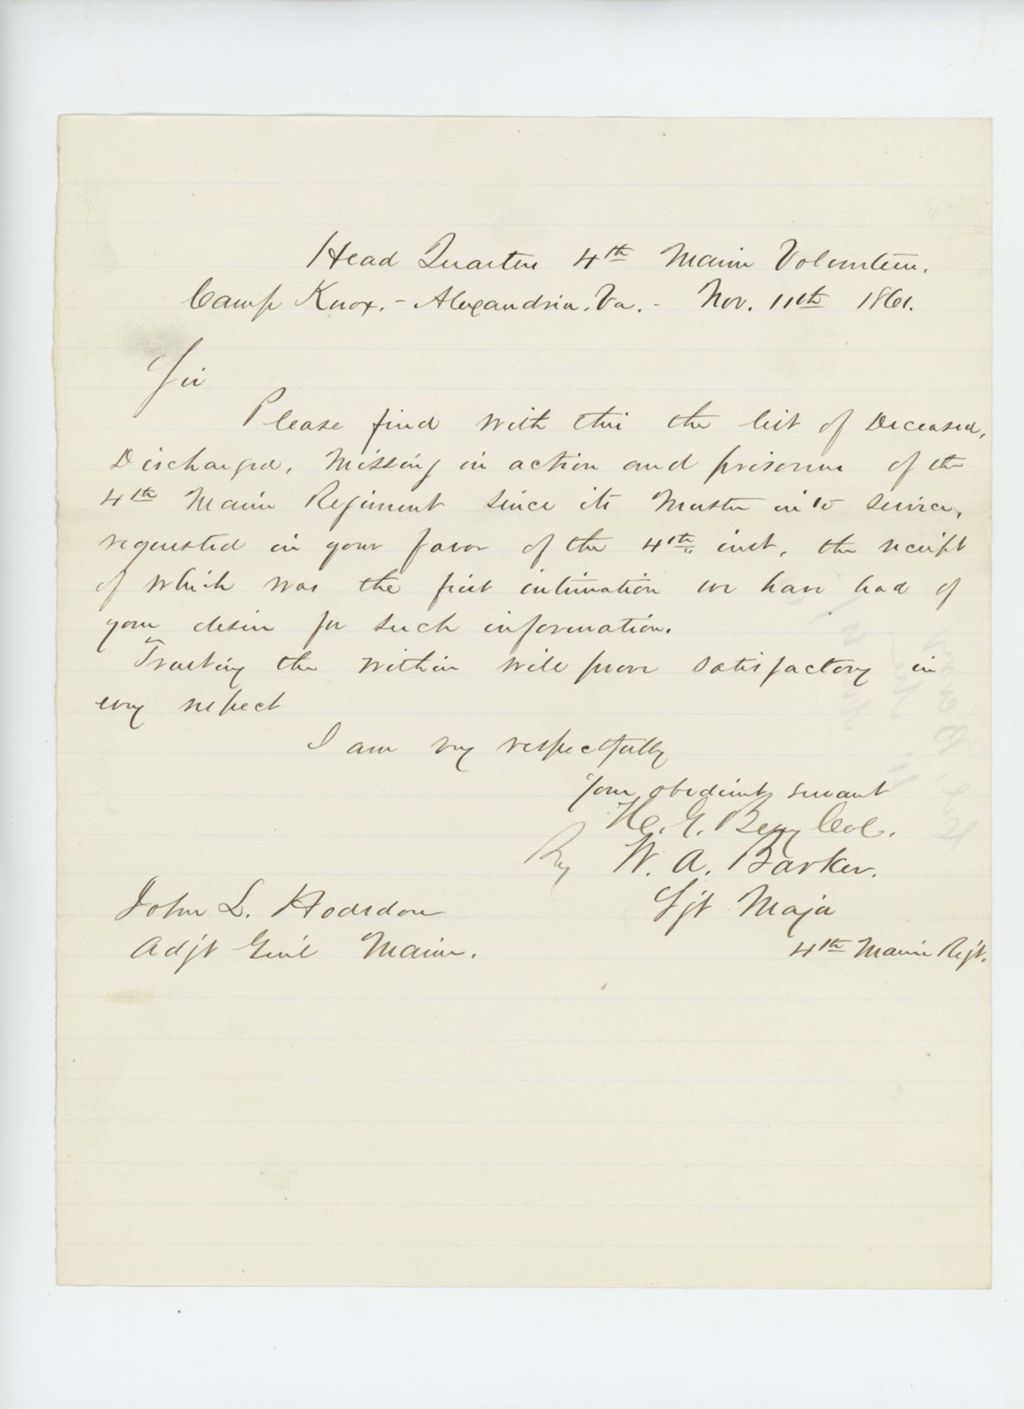 Head Quarters 4th Maine Volunteers.
Camp Knox, - Alexandria, Va. - Nov. 11th 1861.
Sir
Please find with this the list of Deceased,
Discharged, Missing in action and prisoners of the
4th Maine Regiment since its Muster into service,
requested in your favor of the 4th inst, the receipt
of which was the first intimation we have had of
your desire for such information.
Trusting the within will prove satisfactory in
every respect
I am very respectfully
Your obedient servant
H. G. Berry Col.
By W. A. Barker.
Sgt Major
John L. Hodsdon
Adjt Genl Maine.
4th Maine Regt.